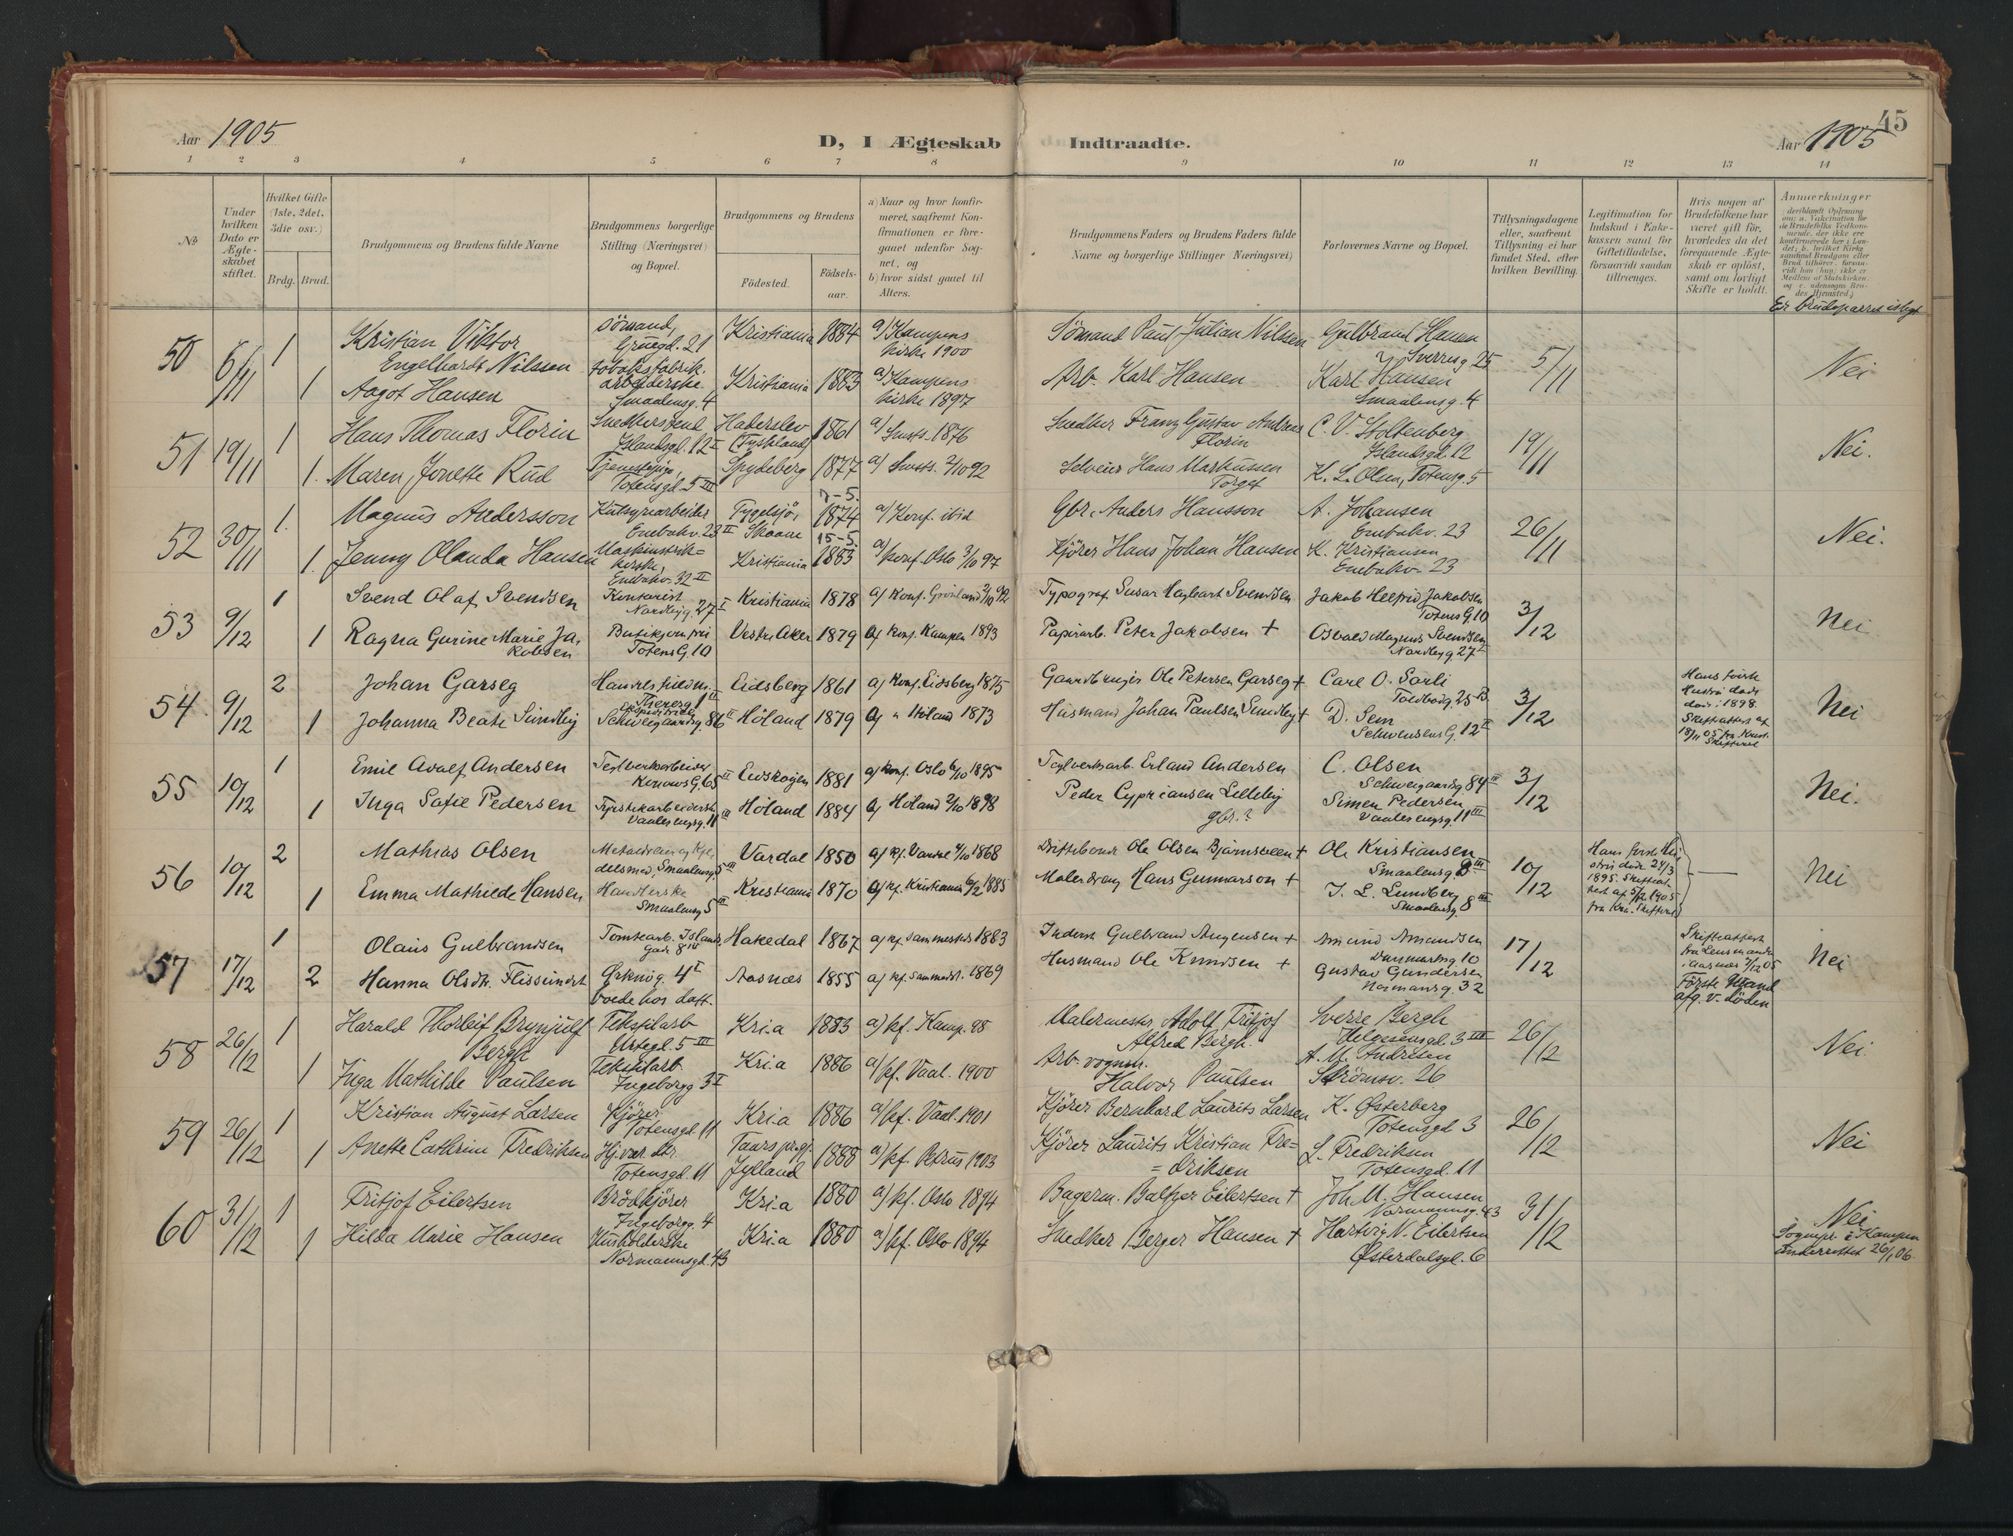 Aar 1905
D, I Ægteskab Indtraadte.
45
Aar 1905
1 2 3 4 5 6 7 8 9 10 11 12 13 14
No
Under hvilken Dato er Ægteskabet stiftet.
Hvilket Gifte (1ste, 2det, 3die osv.)
Brdg. Brud.
Brudgommens og Brudens fulde Navne
Brudgommens borgerlige Stilling (Næringsvei) og Bopæl.
Brudgommens og Brudens
Fødested.
Fødselsaar.
a) Naar og hvor konfirmeret, saafremt Konfirmationen er foregaaet udenfor Sognet, og
b) hvor sidst gaaet til Alters.
Brudgommens Faders og Brudens Faders fulde Navne og borgerlige Stillinger Næringsvei)
Forlovernes Navne og Bopæl.
Tillysningsdagene eller, saafremt Tillysning ei har fundet Sted. efter hvilken Bevilling.
Legitimation for Indskud i Enkekassen samt for Giftetilladelse, forsaavidt saadan tiltrænges.
Hvis nogen af Brudefolkene har været gift før, hvorledes da det foregaaende Ægteskab er opløst, samt om lovligt Skifte er holdt.
Anmerkninger
Er brudeparret
50 6/11 1 Kristian Viktor Engelhardt Nilssen Sømand, Gruegd. 21 Kristiania 1884 a) Kampens kirke 1900 Sømand Paul Julian Nilssen Gulbrand Hansen Sverresg 25 5/11 Nei
1 Aagot Hansen Tobaksfabrikarbeiderske Smaalensg. 4 Kristiania 1883 a) Kampens kirke 1897 Arb. Karl Hansen Karl Hansen Smaalensg. 4
51 19/11 1 Hans Thomas Florin Snedkersvend Islandsgd. 12 I Haderslev (Tyskland) 1861 a) 1876 Snedker Franz Gustav Andreas Florin C. V. Stoltenberg Islandsgd. 12 19/11 Nei.
1. Maren Jonette Rud Tjenestepige, Totensgd. 5 III Spydeberg 1877 a) 2/10 92 Selveier Hans Markussen Torget K. L. Olsen, Totensg. 5
52 30/11 1. Magnus Andersson Enebakv. 23 II Skaane 7-5. 1874 a) Konf. ibid Gbr. Anders Hansson A. Johansen Enebakv. 23 26/11 Nei.
1. Jenny Olanda Hansen Enebakv. 32 II Kristiania 15-5. 1883 a) konf. Oslo 3/10 97 Kjører Hans Johan Hansen K. Kristiansen Enebakv. 23
53 9/12 1 Svend Olaf Svendsen Kontorist Nordbyg. 27 I Kristiania 1878 a) Konf. Grønland 2/10 92 Typograf Svendsen Jakob Jakobsen Totens G. 10 3/12 Nei
1 Ragna Gurine Marie Jakobsen Totens G. 10 Vestre Aker 1879 a) konf. Kampen 1893 Papirarb. Peter Jakobsen + Osvald Magnus Svendsen Nordbyg 27 I
54 9/12 2 Johan Garseg Eidsberg 1861 a) Konf. Eidsberg 1875 Gaardbruger Ole Petersen Garseg + Carl O. Sørli Toldbodg. 25 B. 3/12 Hans første Hustru døde 1898. Skifteattest af 18/11 05 fra Krist. Skifteret Nei
1 Johanna Beate Sundby Schweigaardsg. 86 II Høland 1879 a) " Høland 1873 Husmand Johan Paulsen Sundby + D. Sem Schwensens G. 12 II
55 10/12 1 Emil Adolf Andersen Teglverksarbeider 65 II Eidskogen 1881 a) konf. Oslo 6/10 1895 Teglverksarb. Erland Andersen C. Olsen Schweigaardsg 84 II 3/12 Nei.
1 Inga Sofie Pedersen Høland 1884 a) Høland 2/10 1898 Peder Cypriansen Lilleby gbr.? Simen Pedersen 11 III
56 10/12 2 Mathias Olsen Smaalensg 5 III Vardal 1850 a) kf. Vardal 4/10 1868 Ole Olsen Bjørnsveen + Ole Kristiansen Smaalensg. 8 III 10/12 Hans første Hustru døde 24/3 1895. Skifteattest af 5/12 1905 fra Kra. Skifteret Nei
1 Emma Mathilde Hansen Smaalensg 5 III Kristiania 1870 a) kf. Kristiania 6/12 1885 Hans Gunnarson + I. L. Lundberg Smaalensg. 8 III
57 17/12 1 Olaus Gulbrandsen Tomtearb. Islandsgade 8 Hakedal 1867 a) kf. sammesteds 1883 Inderst Gulbrand + Amund Amundsen Danmarksg 10 17/12 Skifteattest fra Lensmanden i Aasnæs 7/12 05 Første Mand afg. v. døden Nei
2 Hanna Olsdtr. Flissundet Ørknøg. 4 I boede hos datt. Aasnæs 1855 a) kf. sammest. 1869 Husmand Ole Knudsen + Gustav Gundersen Normansg. 32
58 26/12 1 Harald Thorleif Brynjulf Bergh Tekstilarb Urtegd. 5 III Kria 1883 a) kf. Kamp. 98 Malermester Adolf Fritjof Alfred Bergh. Sverre Bergh Helgesensgd. 3 III 26/12 Nei
1 Inga Mathilde Paulsen Tekstilarb Ingeborgg 3 I Kria 1886 a) kf. Vaal. 1900 Arb. vognm. Halvor Paulsen A. M. Andresen Strømsv. 26
59 26/12 1 Kristian August Larsen Kjører Totensgd. 11 Kria 1886 a) kf. Vaal. 1901 Kjører Bernhard Laurits Larsen K. Østerberg Totensgd 3 26/12 Nei
1 Anette Cathrine Fredriksen Hjvær. dtr. Totensgd. 11 Jylland 1888 a) kf. Petrus 1903 Kjører Laurits Kristian Fredriksen L. Fredriksen Totensgd. 11
60 31/12 1 Fritjof Eilertsen Brødkjører Ingeborgg. 4 Kria 1880 a) kf. Oslo 1894 Bagerm. Baltzer Eilertsen + Joh M. Hansen Normannsg. 43 31/12 Nei Sognepr. i Kampen underrettet 26/1 06.
1 Hilda Marie Hansen Husholderske Normannsgd. 43 Kria 1880 a) kf. Oslo 1894 Snedker Berger Hansen + Hartvig N. Eilertsen Østerdalsgd. 6